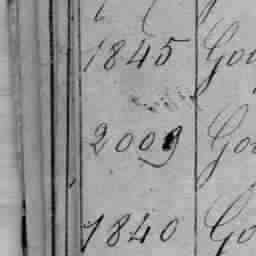 1845 Gou
2009 Gou
1840 Go